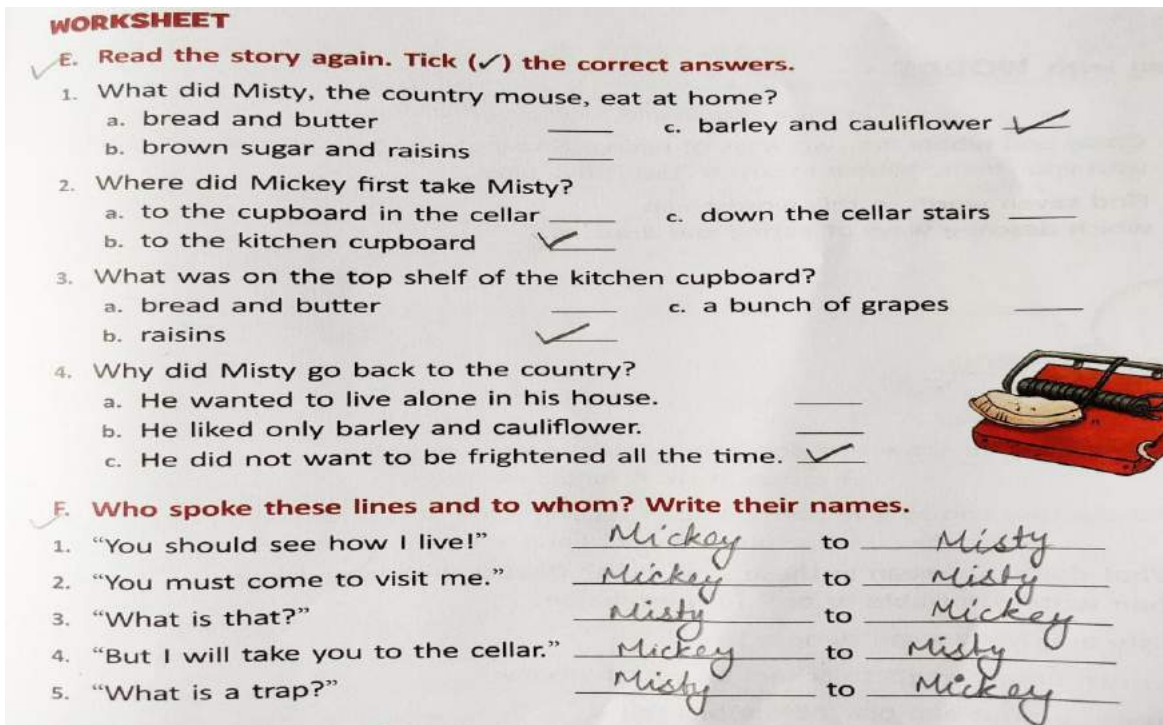 WORKSHEET
E. Read the story again. Tick (✓) the correct answers.
1. What did Misty, the country mouse, eat at home?
a. bread and butter ____ c. barley and cauliflower ✓
b. brown sugar and raisins ____
2. Where did Mickey first take Misty?
a. to the cupboard in the cellar ____ c. down the cellar stairs ____
b. to the kitchen cupboard ✓
3. What was on the top shelf of the kitchen cupboard?
a. bread and butter ____ c. a bunch of grapes ____
b. raisins ✓
4. Why did Misty go back to the country?
a. He wanted to live alone in his house. ____
b. He liked only barley and cauliflower. ____
c. He did not want to be frightened all the time. ✓
F. Who spoke these lines and to whom? Write their names.
1. “You should see how I live!” Mickey to Misty
2. “You must come to visit me.” Mickey to Misty
3. “What is that?” Misty to Mickey
4. “But I will take you to the cellar.” Mickey to Misty
5. “What is a trap?” Misty to Mickey